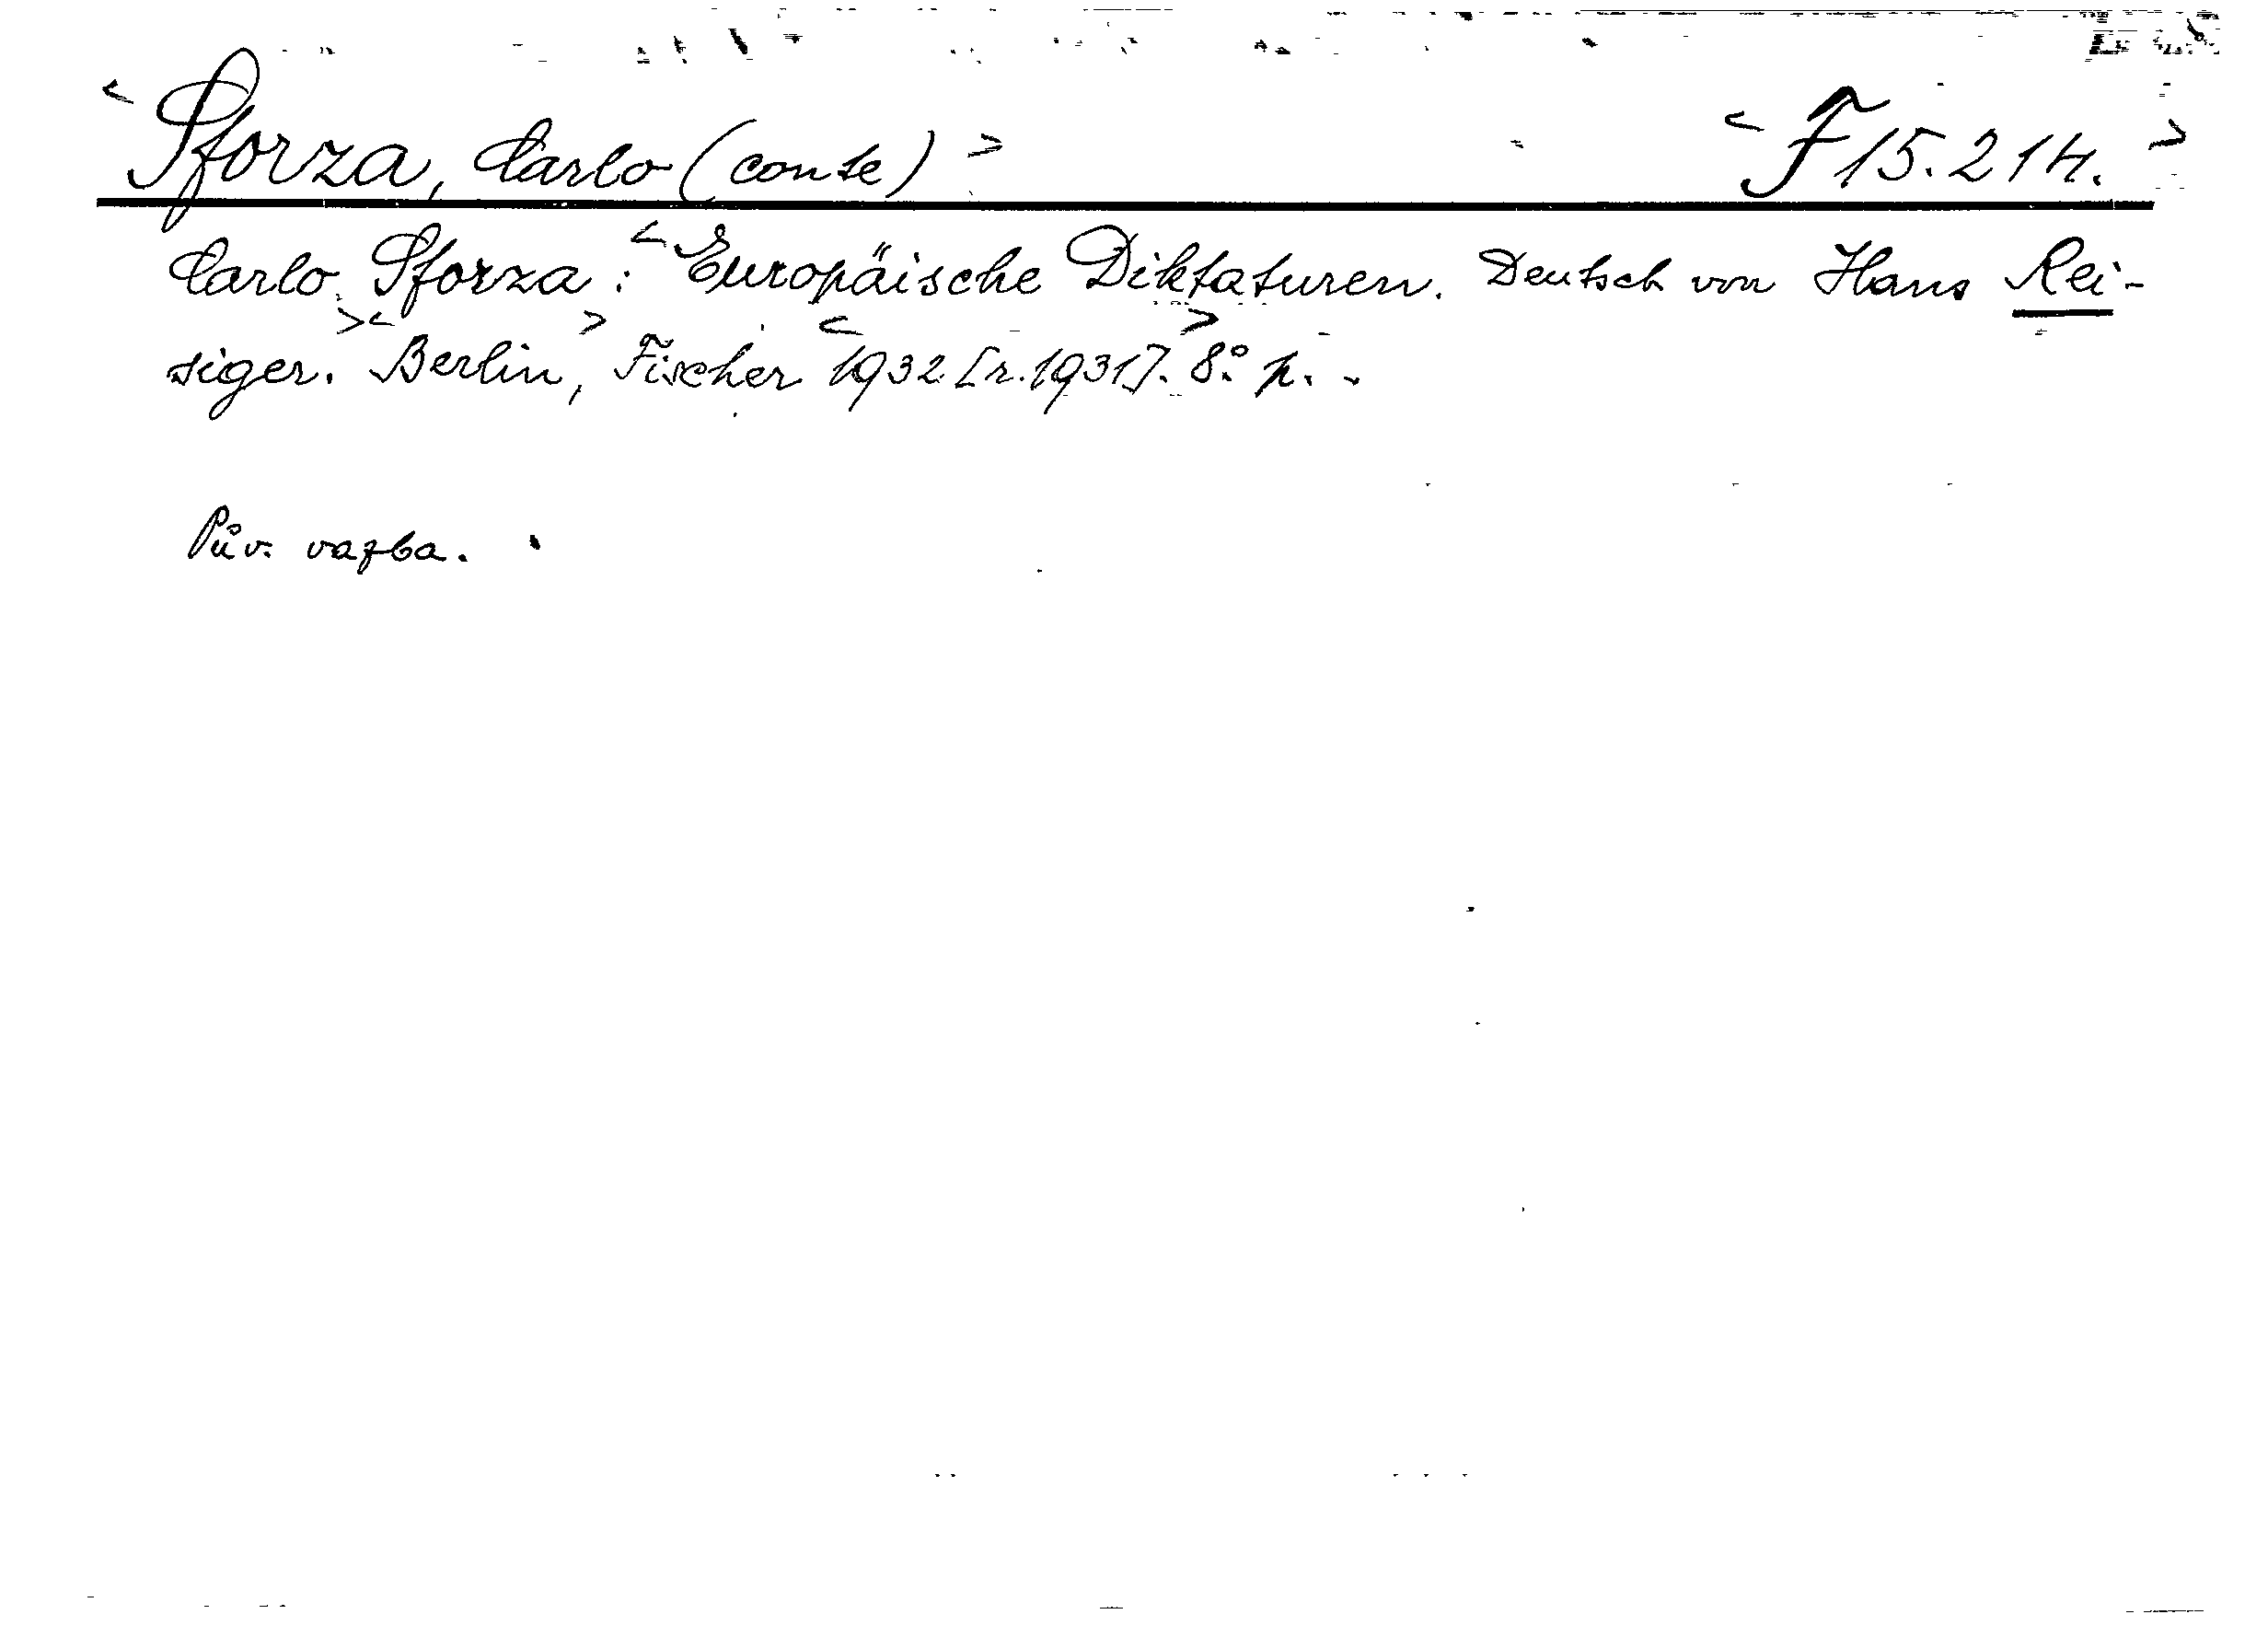 < Sforza, Carlo (conte) > < F 15.214. >
Carlo Sforza: < Europäische Diktaturen. Deutsch von Hans Rei-
siger. > < Berlin, > Fischer < 1932 [r. 1931]. > 8.° p.
Pův. vazba.